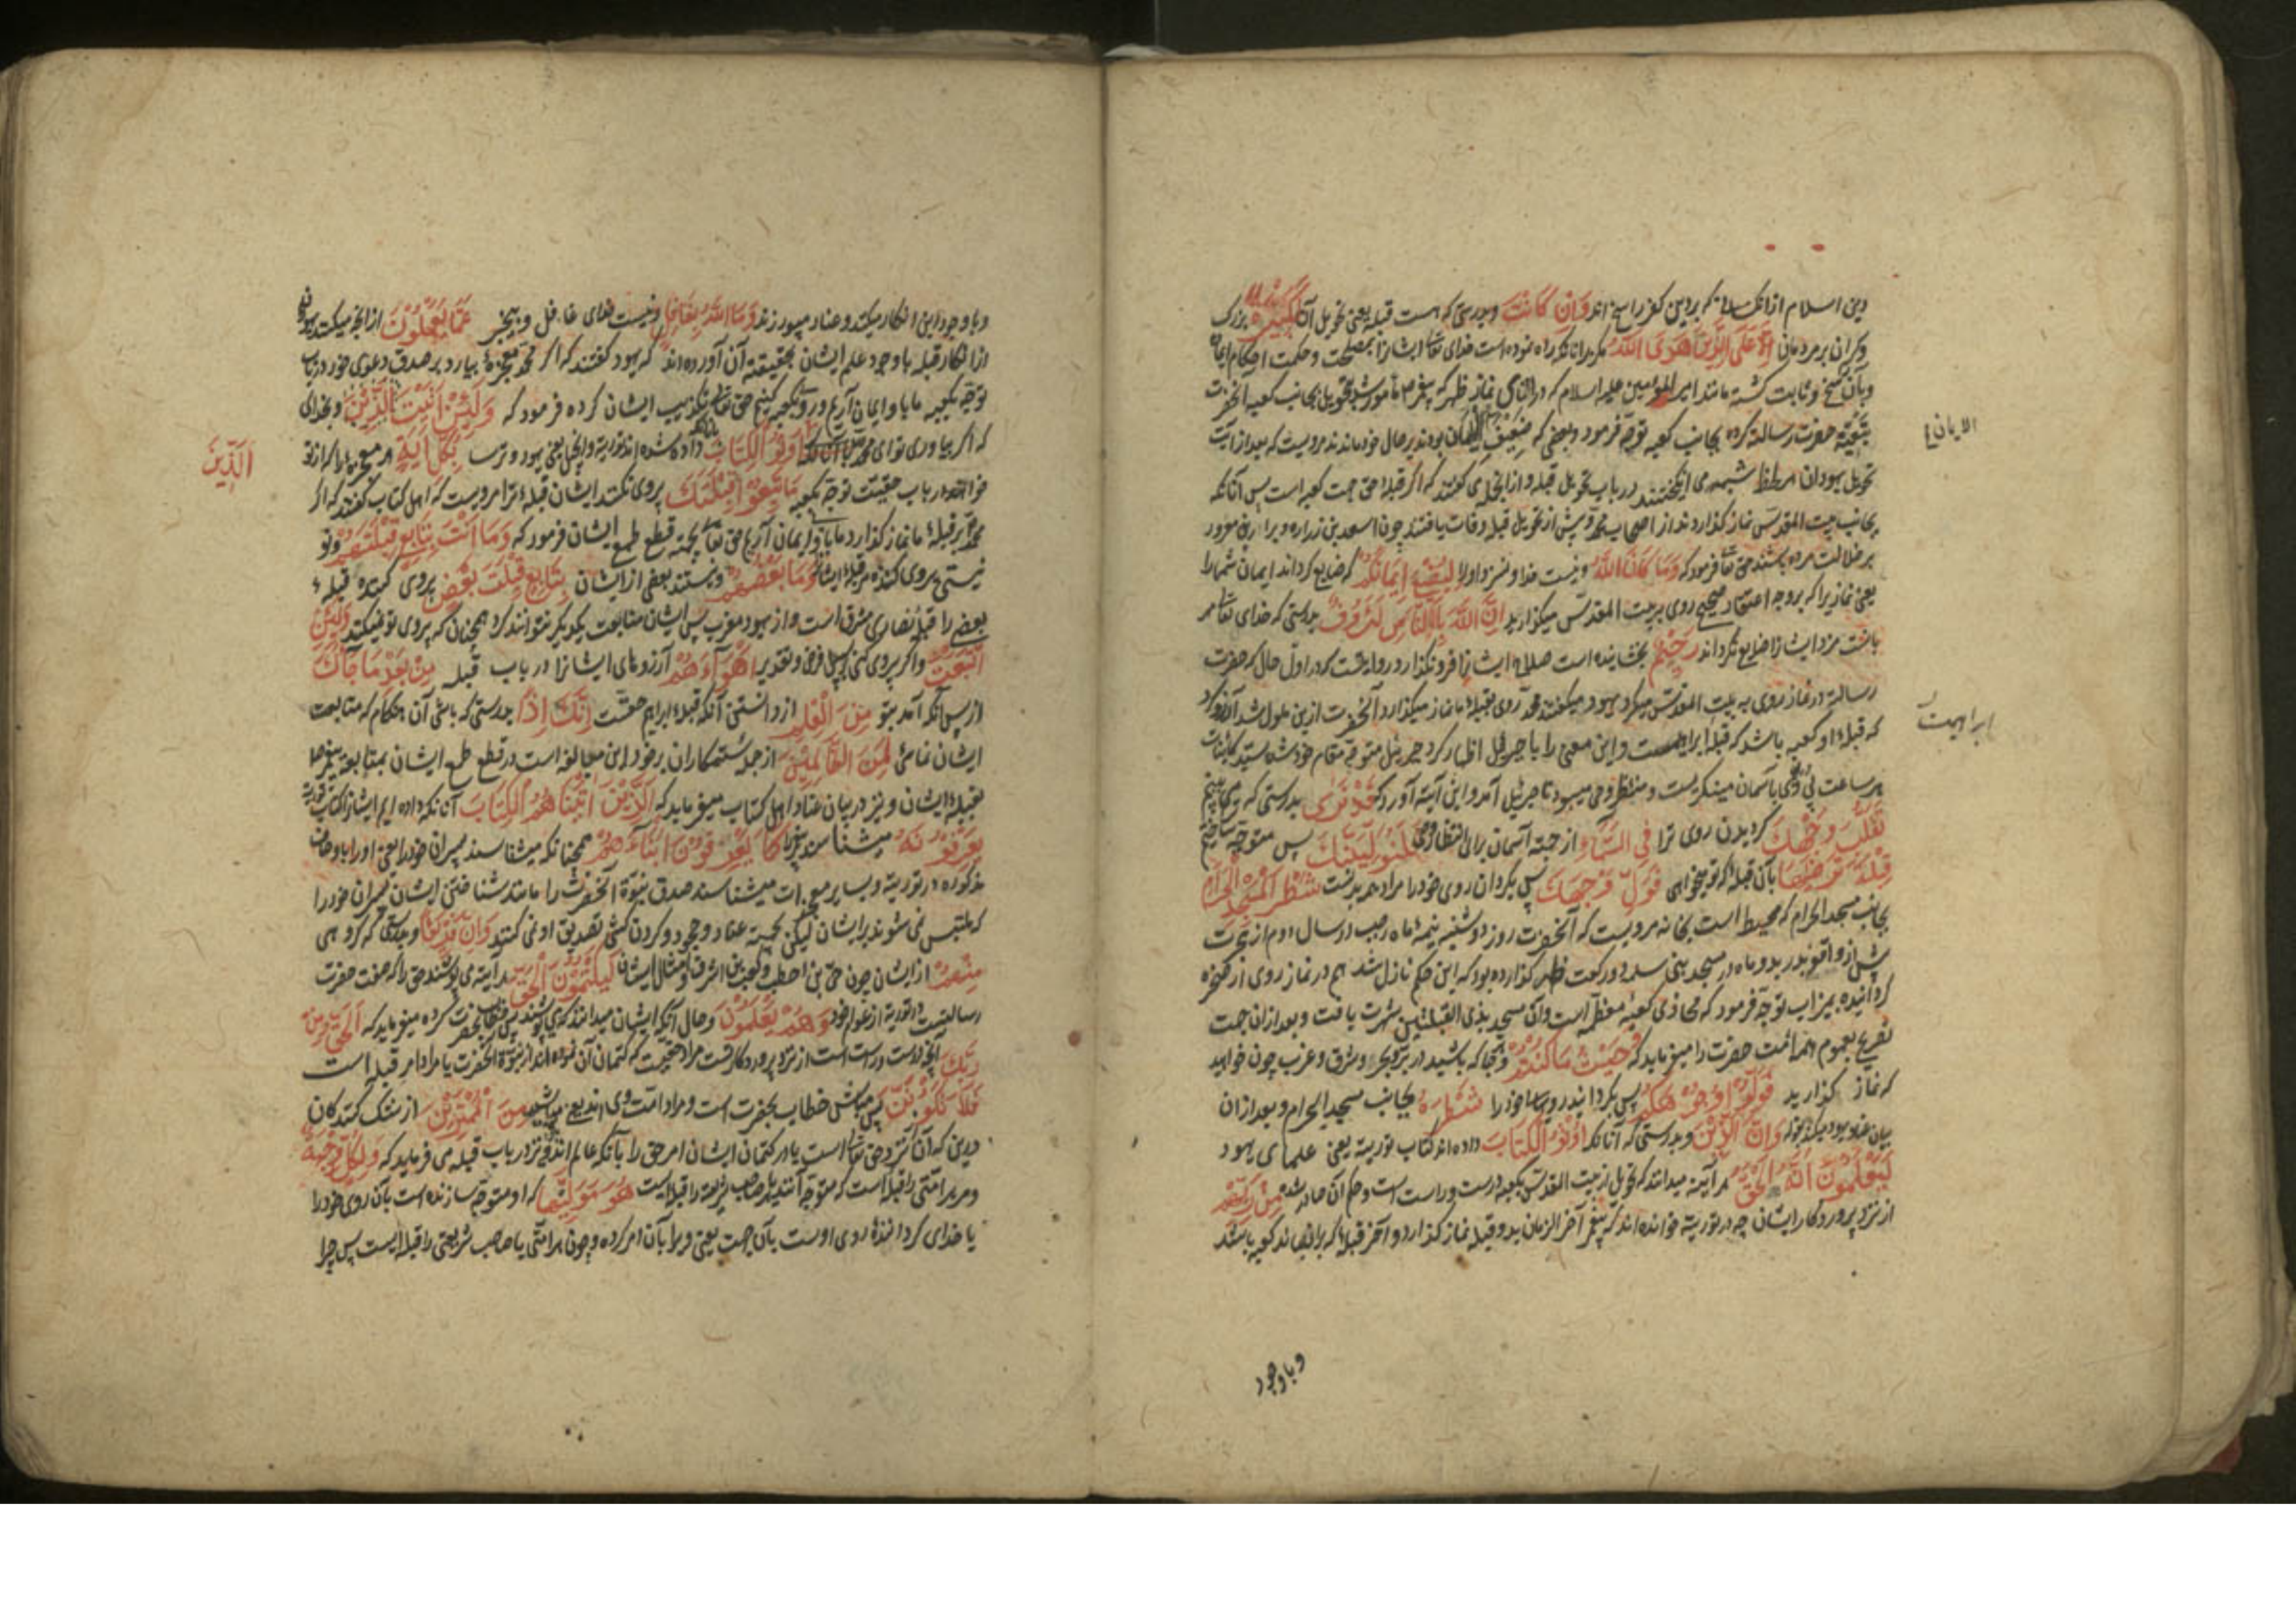 دین اسلام از آنکسانکه بر دین کفر راسخ‌اند وَاِنْ كَانَتْ و بدرستی که هست قبله یعنی تحویل آن لَكَبِيرَةً بزرک
و کران بر مردمان اِلَّا عَلَى الَّذِينَ هَدَى اللّٰهُ مکر بر آنانکه راه نموده است خدای تعا ایشانرا بمصلحت و حکمت احکام ایمان
و بآن راسخ و ثابت کشته مانند امیر المؤمنین علیه السلام که در اثنای نماز ظهر که پیغمبر ص مأمور شد بتحویل بجانب کعبه آنحضرت
بتبعیّة حضرت رسالة کرده بجانب کعبه توجّه فرمود و بعضی که ضعیف الایمان بودند بر حال خود ماندند مرویست که بعد از آیت
الایمان
تحویل یهودان شبهه می انکیختند در باب تحویل قبله و از آنجمله می کفتند که اکر قبلهٔ حق جهت کعبه است پس آنانکه
بجانب بیت المقدس نماز کذاردند از اصحاب محمّد و پیش از تحویل قبله وفات یافتند چون اسعد بن زراره و براء بن معرور
بر ضلالت مرده باشند حق تعا فرمود که وَمَا كَانَ اللّٰهُ و نیست خدا و نسزد او را لِيُضِيعَ اِيمَانَكُمْ که ضایع کرداند ایمان شما را
یعنی نماز یرا که بر وجه اعتقاد صحیح روی به بیت المقدّس میکزارید اِنَّ اللّٰهَ بِالنَّاسِ لَرَؤُفٌ بدرستی که خدای تعا مر
رَحِيْمٌ بخشاینده است صلاح ایشانرا فرو نکذارد و روایتست که در اوّل حال که حضرت
رسالة در نماز روی به بیت المقدّس میکرد یهود میکفتند محمّد روی بقبلهٔ ما نماز میکزارد آنحضرت ازین ملول شد آرزو کرد
که قبلهٔ او کعبه باشد که قبلهٔ ابراهیمست و این معنی را با جبرئیل اظهار کرد جبرئیل متوجّه مقام خود شد سیّد کاینات
ابراهیمست
هر ساعت روی بآسمان مینکریست و منتظر وحی میبود تا جبرئیل آمد و این آیة آورد که قَدْ نَرٰى بدرستی که می بینیم
تَقَلُّبَ وَجْهِكَ کردیدن روی ترا فِي السَّمَآءِ از جهة آسمان برای انتظار وحی فَلَنُوَلِّيَنَّكَ پس متوجّه ساختیم
قِبْلَةً تَرْضٰيهَا بآن قبلهٔ که تو میخواهی فَوَلِّ وَجْهَكَ پس بکردان روی خود را مراد همه بدنست شَطْرَ الْمَسْجِدِ الْحَرَامِ
بجانب مسجد الحرام که محیط است بخانه مرویست که آنحضرت روز دوشنبه نیمهٔ ماه رجب در سال دوم از هجرت
پیش از واقعهٔ بدر بدو ماه در مسجد بنی سلمه دو رکعت ظهر کزارده بود که این حکم نازل شد هم در نماز روی از صخره
کردانیده بمیزاب توجّه فرمود که محاذی کعبهٔ معظّمه است و آن مسجد بذی القبلتین شهرت یافت و بعد از آن جهت
تصریح بعموم امر امّت حضرت را میفرماید که وَحَيْثُ مَا كُنْتُمْ و هر کجا که باشید از برّ و بحر و شرق و غرب چون خواهید
که نماز کذارید فَوَلُّوْا وُجُوْهَكُمْ پس بکردانید رویهای خود را شَطْرَهُ بجانب مسجد الحرام و بعد از آن
بیان عناد یهود میکند که وَاِنَّ الَّذِيْنَ و بدرستی که آنانکه اُوتُوا الْكِتَابَ داده‌اند کتاب توریة یعنی علمای یهود
لَيَعْلَمُوْنَ اَنَّهُ الْحَقُّ هر آینه میدانند که تحویل از بیت المقدّس بکعبه درست و راست است و حکم آن صادر شده مِنْ رَبِّهِمْ
از نزد پروردکار ایشان چه در توریة خوانده‌اند که پیغمبر آخر الزمان بدو قبله نماز کذارد و آخر قبلهٔ که برآن ماند کعبه باشد
و با وجود
و با وجود این انکار میکند و عناد میورزند وَمَا اللّٰهُ بِغَافِلٍ و نیست خدای غافل و بیخبر عَمَّا يَعْمَلُوْنَ از آنچه میکنند یهودان
از انکار قبله با وجود علم ایشان بحقیقة آن آورده‌اند که یهود کفتند که اکر محمّد معجزهٔ بیارد بر صدق دعوی خود در باب
توجّه بکعبه ما باو ایمان آریم و رو بکعبه کنیم حق تعا تکذیب ایشان کرده فرمود که وَلَئِنْ اَتَيْتَ الَّذِيْنَ و بخدای
که اکر بیاوری تو ای محمّد بآنانکه اُوتُوا الْكِتَابَ داده شده‌اند توریة و انجیل یعنی یهود و ترسا بِكُلِّ اٰيَةٍ هر معجزهٔ را که از تو
اَلَّذِيْنَ
خواهند در باب حقیّت توجّه بکعبه مَا تَبِعُوْا قِبْلَتَكَ پیروی نکنند ایشان قبلهٔ ترا مرویست که اهل کتاب کفتند که اکر
محمّد بر قبلهٔ ما نماز کذارد ما باو ایمان آریم حق تعا بجهة قطع طمع ایشان فرمود که وَمَا اَنْتَ بِتَابِعٍ قِبْلَتَهُمْ و تو
نیستی پیروی کننده مر قبلهٔ ایشان را وَمَا بَعْضُهُمْ و نیستند بعضی از ایشان بِتَابِعٍ قِبْلَةَ بَعْضٍ پیروی کننده قبلهٔ
بعضی را قبلهٔ نصاری مشرق است و از یهود مغرب پس ایشان متابعت یکدیکر نتوانند کرد همچنانکه پیروی تو نمیکنند وَلَئِنِ
اتَّبَعْتَ و اکر پیروی کنی بر سبیل فرض و تقدیر اَهْوَآءَهُمْ آرزوهای ایشانرا در باب قبله مِنْ بَعْدِ مَا جَآءَكَ
از پس آنکه آمد بتو مِنَ الْعِلْمِ از دانستن آنکه قبلهٔ ابراهیم حقست اِنَّكَ اِذًا بدرستی که باشی آن هنکام که متابعت
ایشان نمائی لَمِنَ الظَّالِمِيْنَ از جمله ستمکاران بر خود این مبالغه است در قطع طمع ایشان بمتابعت پیغمبر ص
بقبلهٔ ایشان و نیز در بیان عناد اهل کتاب میفرماید که اَلَّذِيْنَ اٰتَيْنَاهُمُ الْكِتَابَ آنانکه داده‌ایم ایشانرا کتاب توریة
يَعْرِفُوْنَهُ میشناسند پیغمبر را كَمَا يَعْرِفُوْنَ اَبْنَآءَهُمْ همچنانکه میشناسند پسران خود را یعنی او را باوصاف
مذکوره در توریة و بسایر معجزات میشناسند صدق نبوّة آنحضرت را مانند شناختن ایشان پسران خود را
که ملتبس نمی شوند بر ایشان لیکن بجهت عناد و جحود و کردن کشی تصدیق او نمی کنند وَاِنَّ فَرِيْقًا و بدرستی که کروهی
مِنْهُمْ از ایشان چون حیّ بن اخطب و کعب بن اشرف و امثال ایشان لَيَكْتُمُوْنَ الْحَقَّ هر آینه می پوشند حق را که نعت حضرت
رسالتست در توریة از عوام خود وَهُمْ يَعْلَمُوْنَ و حال آنکه ایشان میدانند که می پوشند پس خطاب بحضرت کرده میفرماید که اَلْحَقُّ مِنْ
رَبِّكَ آنچه درست و راست است از نزد پروردکار تست مراد حقیّت که کتمان آن نموده‌اند از نبوّة آنحضرت یا مراد امر قبله است
فَلَا تَكُوْنَنَّ پس مباش خطاب بحضرت است و مراد امّت وی اند یعنی مباشید مِنَ الْمُمْتَرِيْنَ از شک کنندکان
درین که آن از نزد حق تعا است یا در کتمان ایشان امر حق را با آنکه عالم‌اند و نیز در باب قبله می فرماید که وَلِكُلٍّ وِجْهَةٌ
و مر هر امّتی را قبله است که متوجّه آنند یا هر صاحب شریعة را قبله‌ایست هُوَ مُوَلِّيْهَا که او متوجّه سازنده است بآن روی خود را
یا خدای کرداننده روی اوست بآن جهت یعنی ویرا بآن امر کرده و چون هر امّتی یا صاحب شریعتی را قبله‌ایست پس چرا